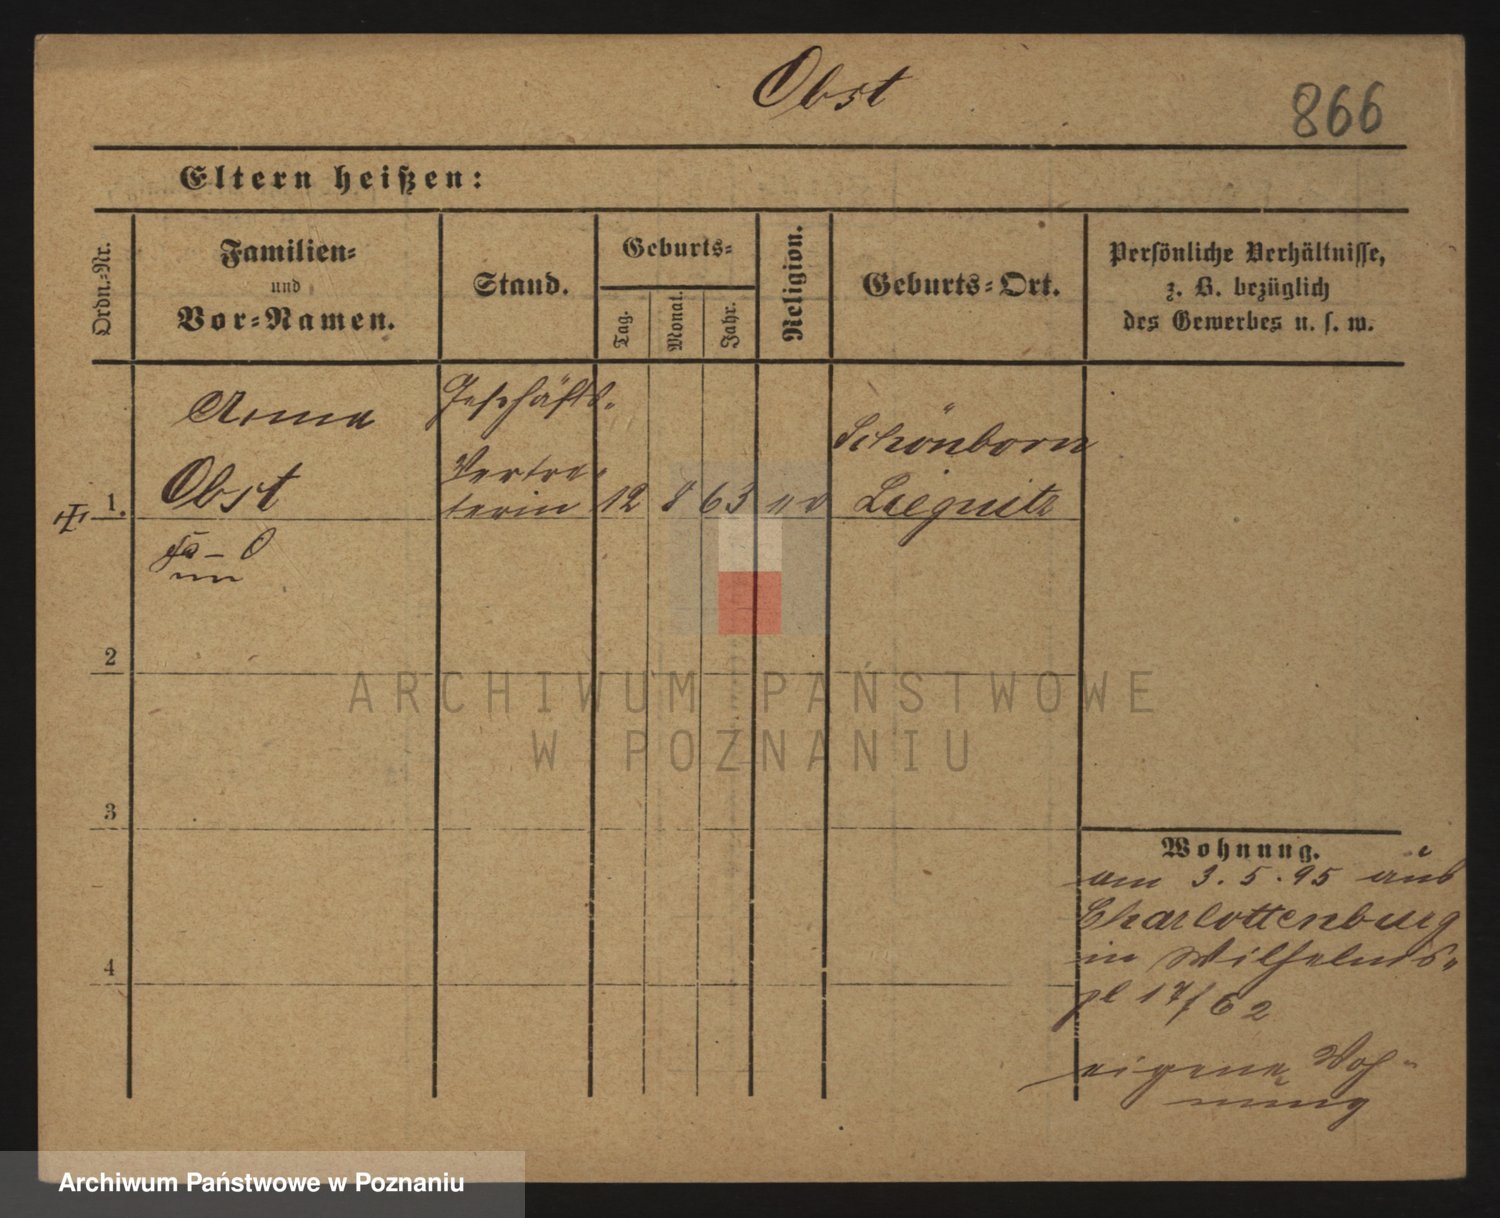 Obst
866
Eltern heißen:
Ordn.-Nr.
Familien-
und
Vor-Namen.
Stand.
Geburts-
Tag.
Monat.
Jahr.
Religion.
Geburts-Ort.
Persönliche Verhältnisse,
z. B. bezüglich
des Gewerbes u. s. w.
Anna
Obst
Geschäfts-
Vertre-
terin
1.
12 8 63 ev
Schönborn
Liegnitz
2
3
4
Wohnung.
am 3.5.95 aus
Charlottenburg
in Wilhelms-
pl 17/62
eigene Woh-
nung
ARCHIWUM PAŃSTWOWE
W POZNANIU
Archiwum Państwowe w Poznaniu